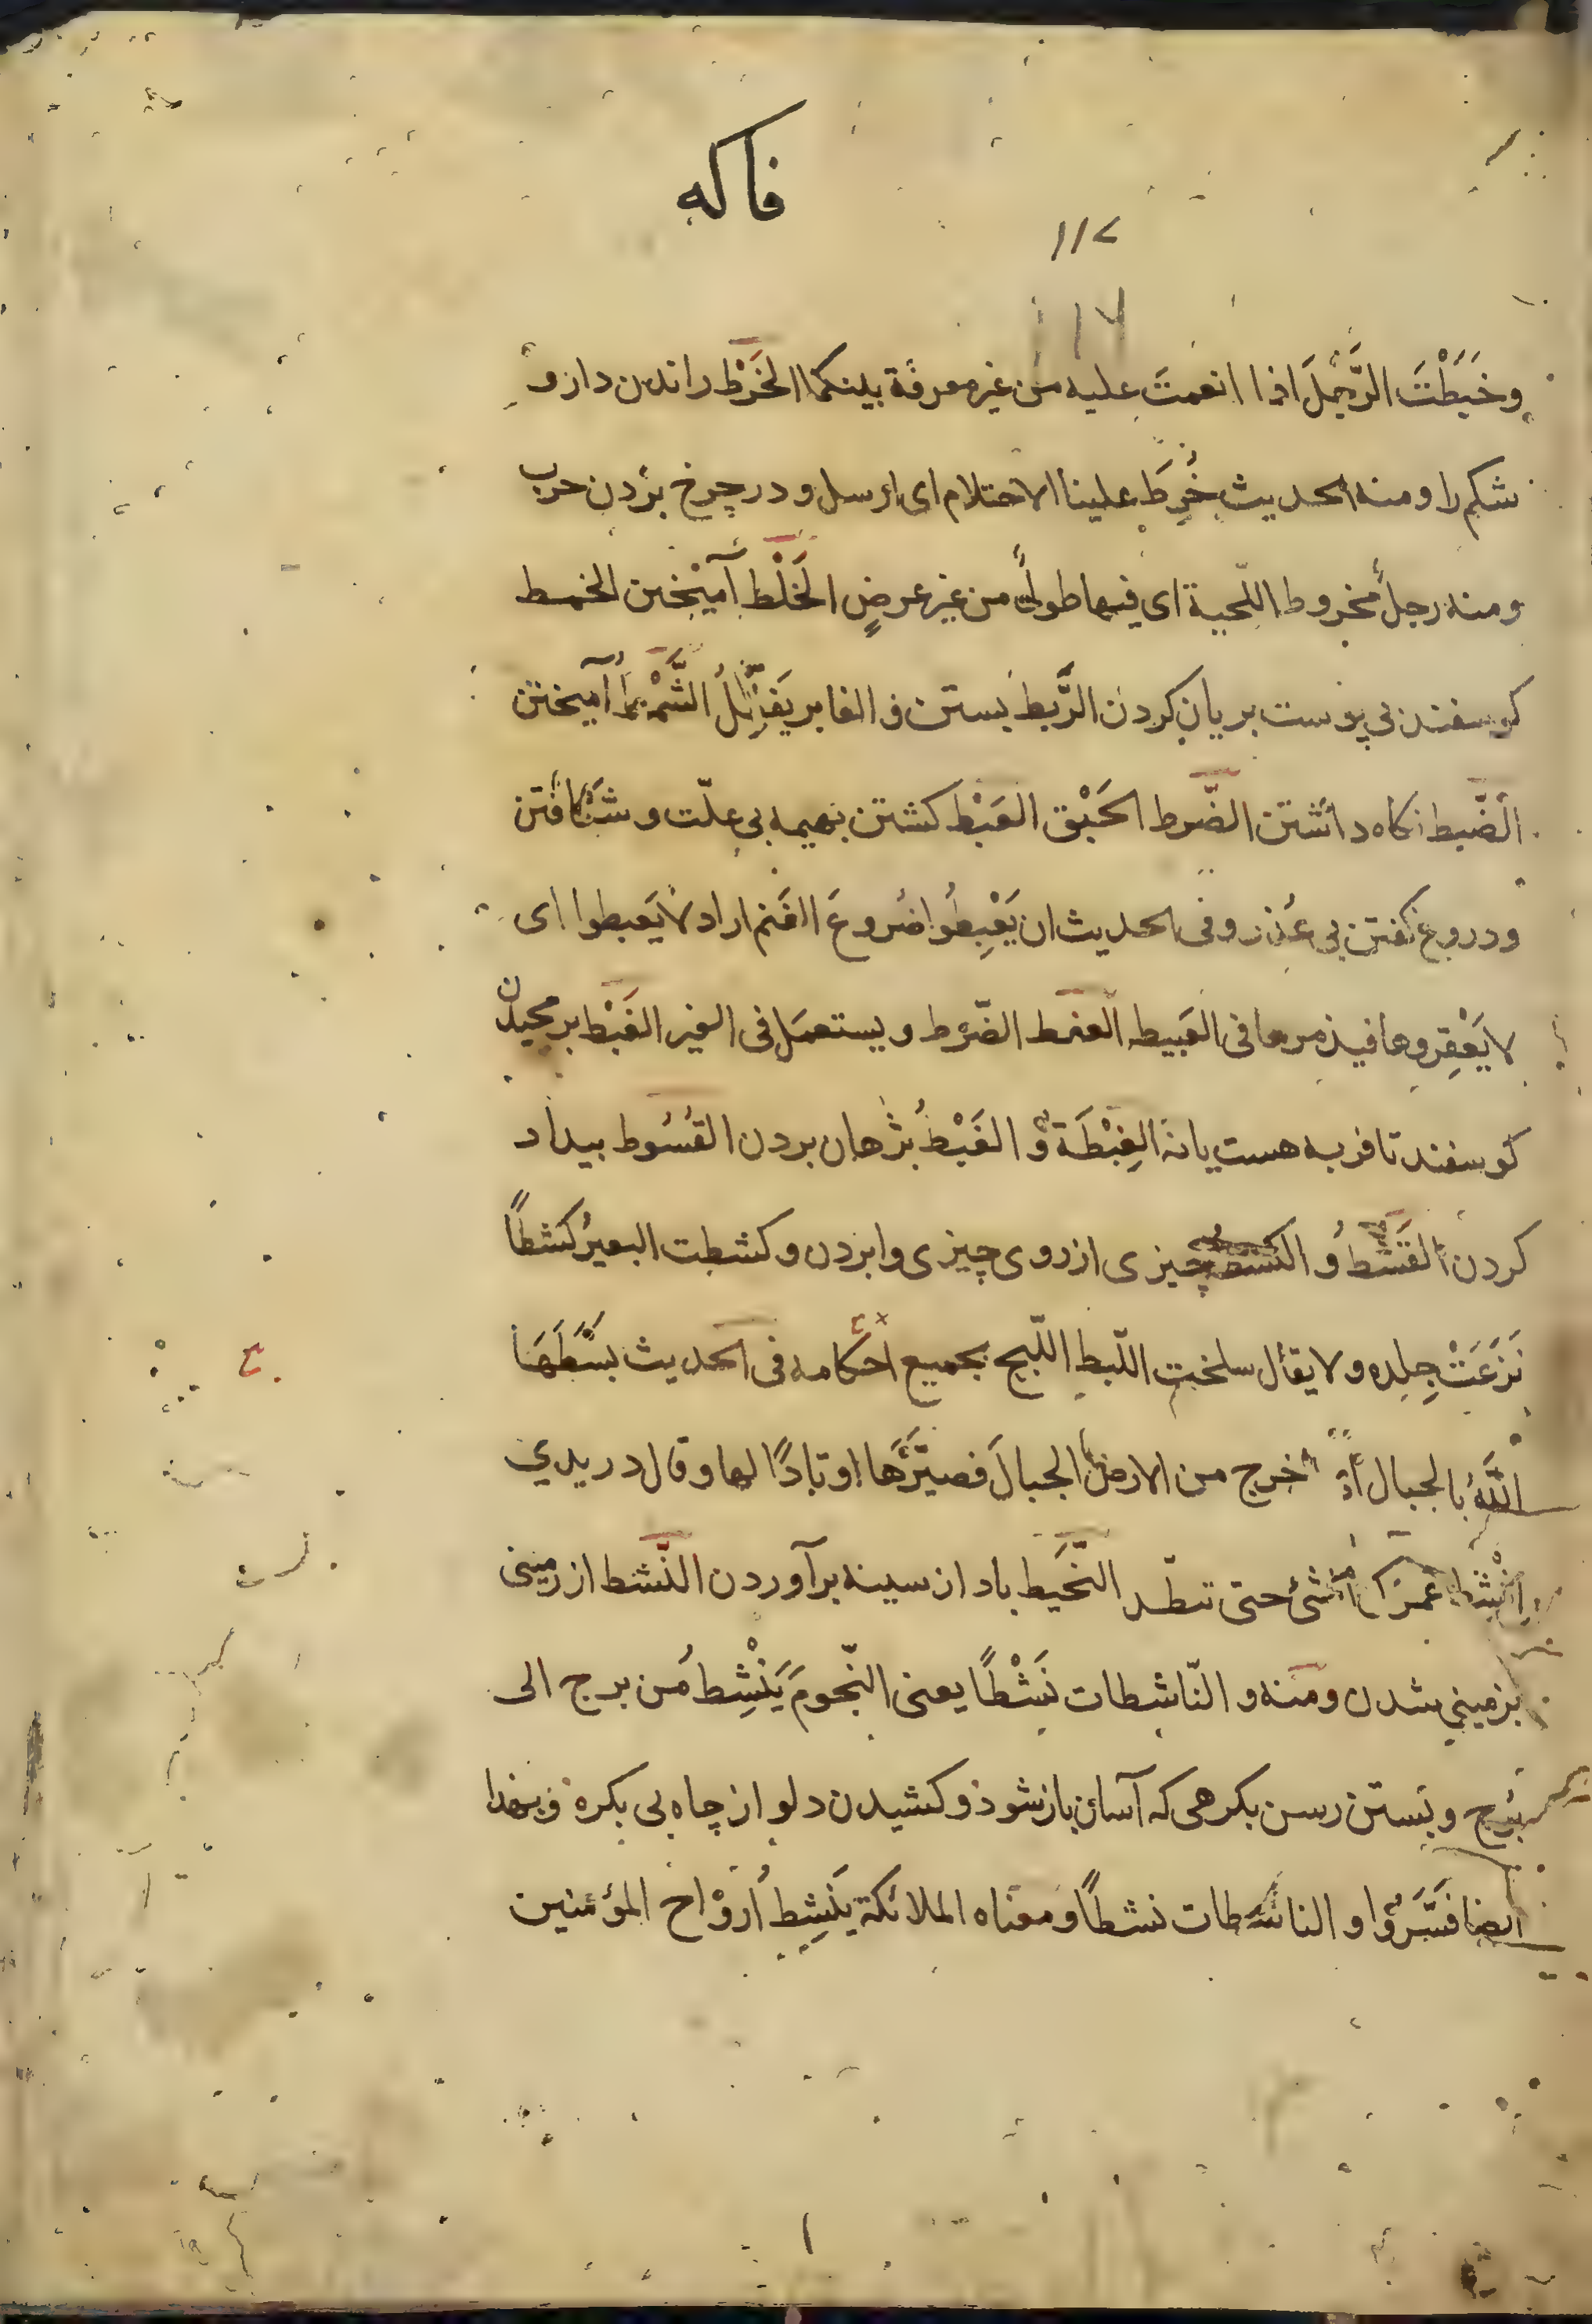 فاكه
۱۱۷
۱۷
وخَبَطْتَ الرَّجُلَ اذا انعمتَ عليه من غير معرفة بينكما الخَرْط راندن دارو
شكم را ومنه الحديث خُرِطَ علينا الاحتلام اى ارسل ودر چرخ بردن حرب
ومنه رجلٌ مخروط اللّحية اى فيها طولٌ من غير عرضٍ الخَلْط آميختن الخمط
كوسفند بى پوست بريان كردن الرَّبط بستن و الغابر يَفعِلُ الشَّمْط آميختن
الضّبط نكاه داشتن الضّرط الحَبْق العَبْط كشتن بهيمه بى علّت وشكافتن
ودروغ كفتن بى عُذر وفى الحديث ان يَعْبِطُوا ضُروعَ الغَنم اراد لا يَعبطوا اى
لا يَعْقِروها فيذمرها فى العَبيط العفط الضّرط ويستعمل فى العير الغَبْط برمجيدن
كوسفند تا فربه هست يا نه الغِبْطَة و الغَبْطُ بژهان بردن القُسُوط بيداد
كردن القَشْط و الكشط چيزى از روى چيزى وا بردن وكشطت البعيرُ كشطًا
نَزَعَتْ جِلده ولا يقال سلخت اللّبط اللّبج بجميع احكامه فى الحديث نشَطَهَا
اللّهُ بالجبال اى اخرج من الارض الجبالَ فصيَّرَها اوتادًا لها وقال دريدي
حتى تنطّد النَّحيط باد از سينه برآوردن النّشط از زمينى
بزمينى شدن ومنه و النّاشطات نَشْطًا يعنى النّجومَ يَنْشِطُ من برج الى
برج وبستن رسن بكرهى كه آسان باز شود وكشيدن دلو از چاه بى بكره وبهذا
ايضا فَسَّرُوا و الناشطات نشطًا ومعناه الملائكة يَنْشِطُ ارْواح المؤمنين